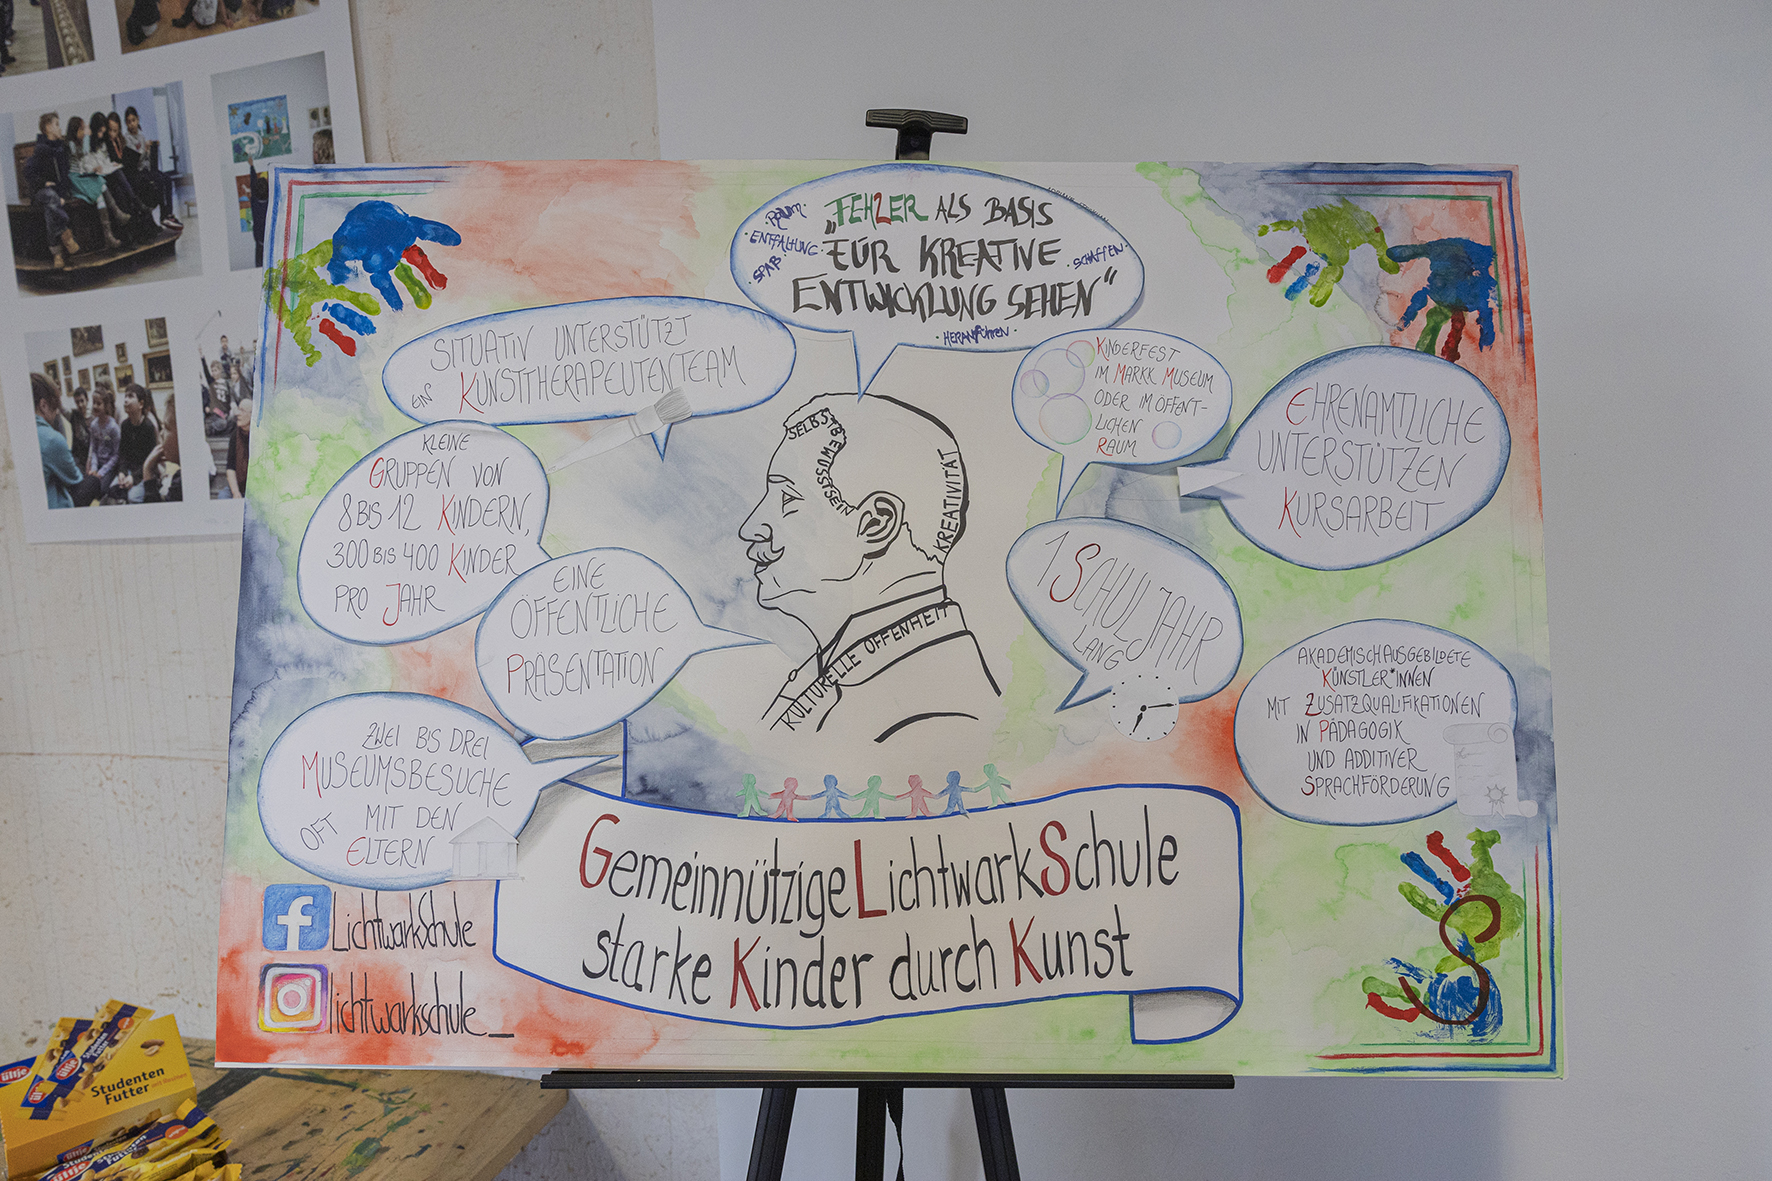 „FEHLER ALS BASIS
FÜR KREATIVE
ENTWICKLUNG SEHEN"
·RAUM·
ENTFALTUNG·
SPAß·
·SCHAFFEN·
·HERANFÜHREN·
SITUATIV UNTERSTÜTZT
EIN KUNSTTHERAPEUTENTEAM
KINDERFEST
IM MARKK MUSEUM
ODER IM ÖFFENT-
LICHEN
RAUM
EHRENAMTLICHE
UNTERSTÜTZEN
KURSARBEIT
KLEINE
GRUPPEN VON
8 BIS 12 KINDERN,
300 BIS 400 KINDER
PRO JAHR
SELBSTBEWUSSTSEIN
KREATIVITÄT
KULTURELLE OFFENHEIT
EINE
ÖFFENTLICHE
PRÄSENTATION
1 SCHULJAHR
LANG
AKADEMISCH AUSGEBILDETE
KÜNSTLER*INNEN
MIT ZUSATZQUALIFIKATIONEN
IN PÄDAGOGIK
UND ADDITIVER
SPRACHFÖRDERUNG
ZWEI BIS DREI
MUSEUMSBESUCHE
MIT DEN
OFT ELTERN
Gemeinnützige LichtwarkSchule
starke Kinder durch Kunst
f LichtwarkSchule
lichtwarkschule_
S
ültje
ültje
Studenten
Futter
ültje
Studenten
ültje